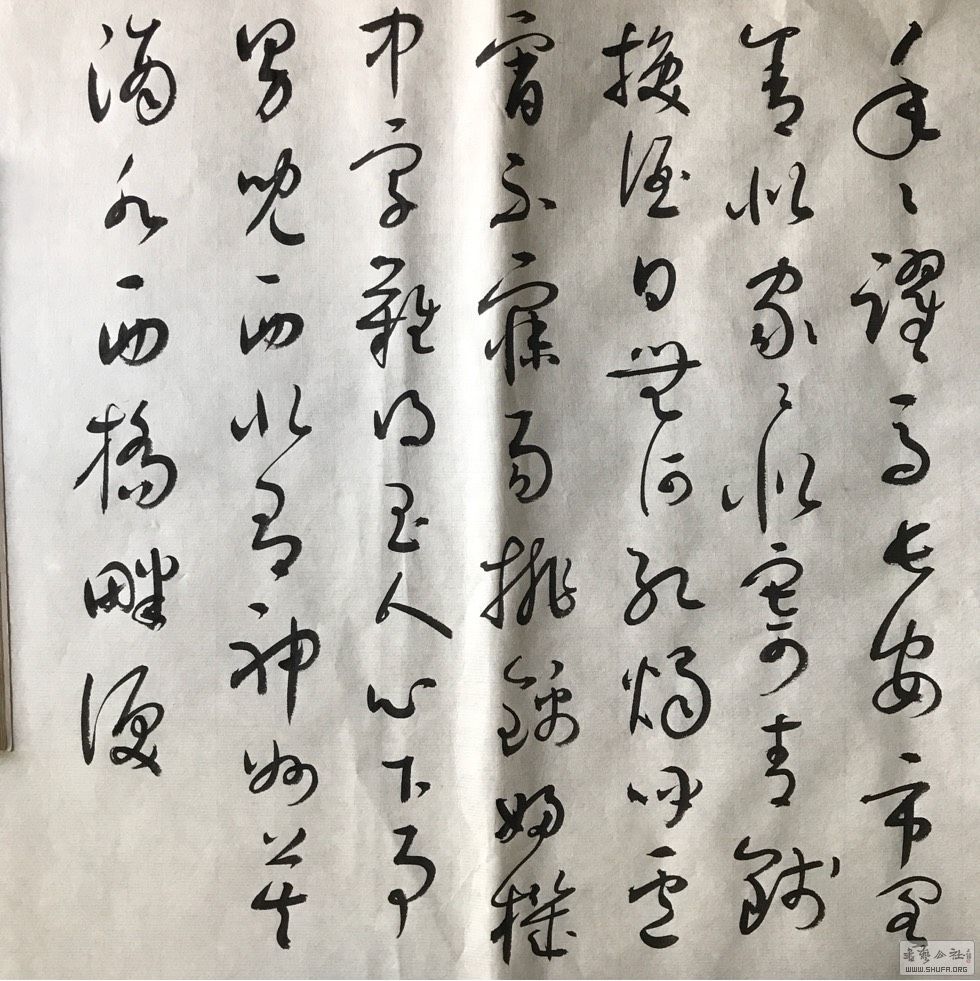 年〻躍馬長安市客
舍似家〻似寄青錢
換酒日無何紅燭呼盧
宵不寐易挑錦婦機
中字難得玉人心下事
男兒西北有神州莫
滴水西橋畔淚
書藝公社
WWW.SHUFA.ORG